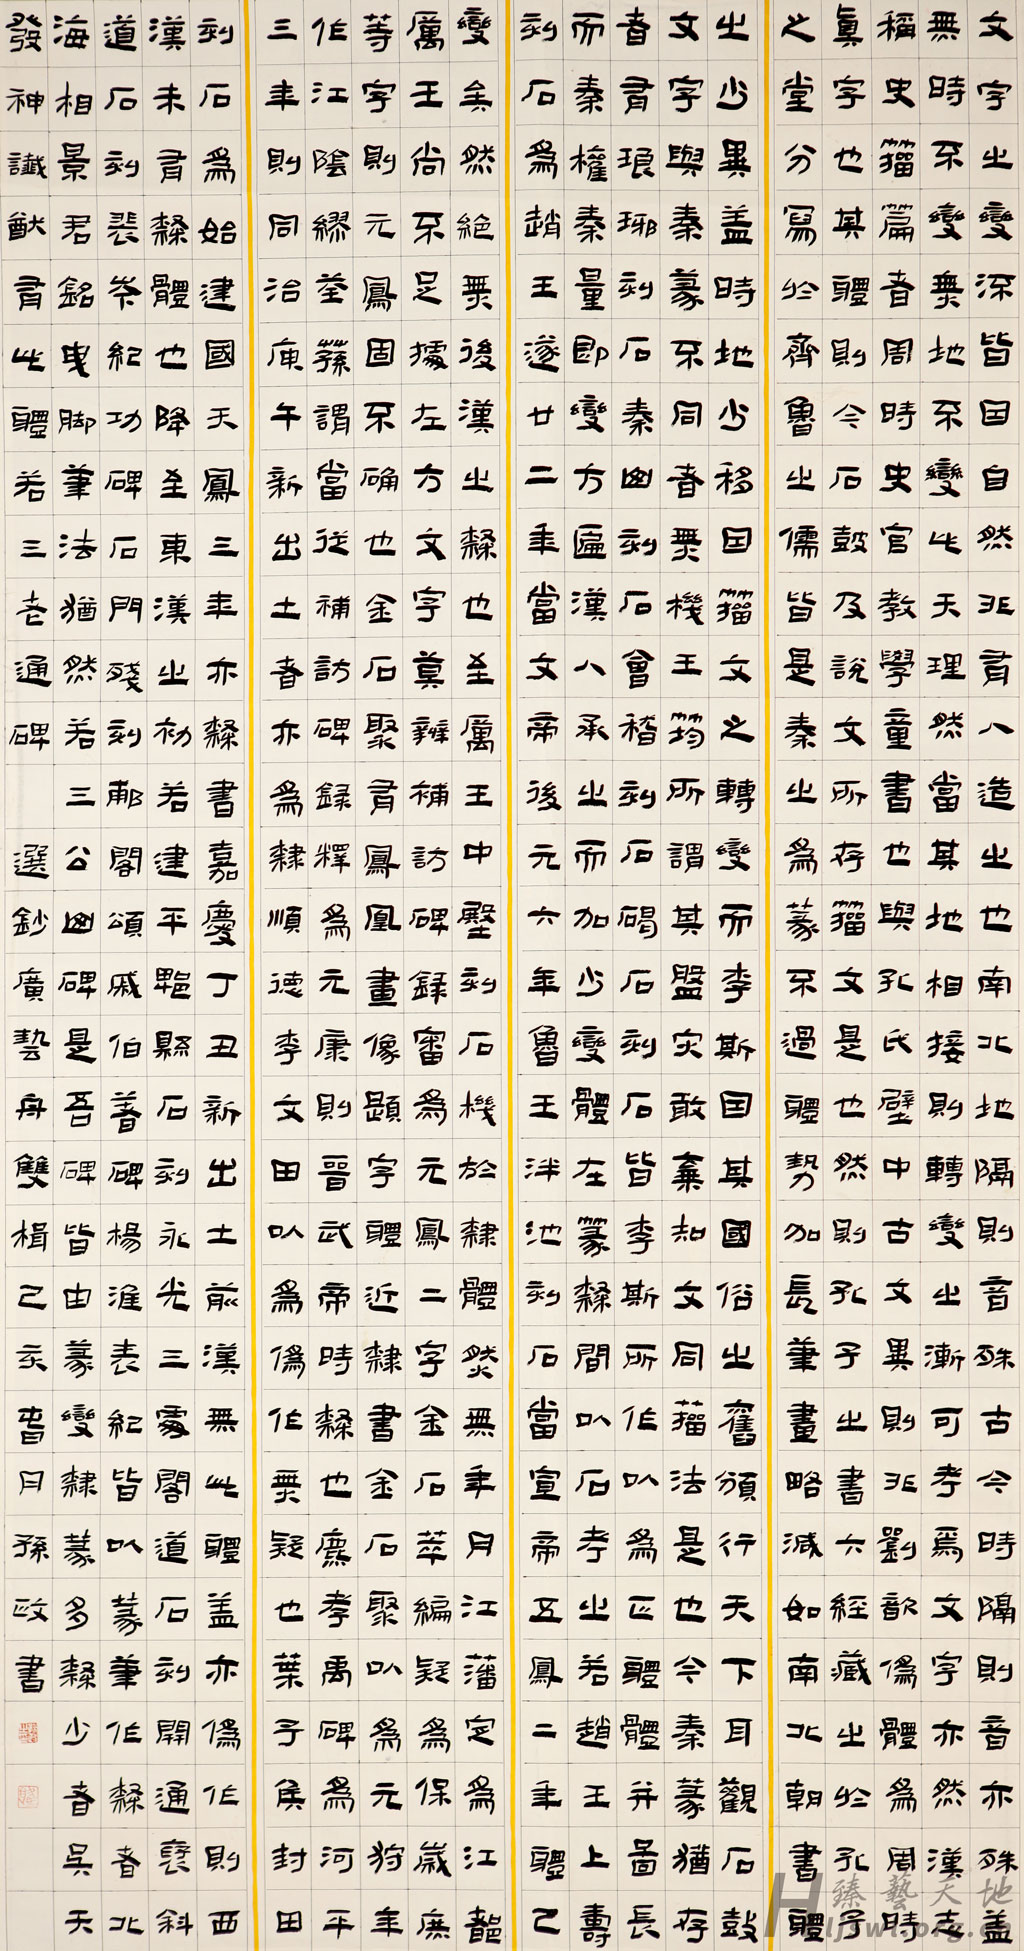 文字之變深皆因自然非有人造之也南北地隔則音殊古今時隔則音亦殊蓋
無時不變無地不變此天理然當其地相接則轉變之漸可考焉文字亦然漢志
稱史籀篇者周時史官教學童書也與孔氏壁中古文異則非劉歆偽體為周時
真字也其體則今石鼓及說文所存籀文是也然則孔子之書六經藏之於孔子
之堂分寫於齊魯之儒皆是秦之為篆不過體勢加長筆畫略減如南北朝書體
之少異蓋時地少移因籀文之轉變而李斯因其國俗之舊頒行天下耳觀石鼓
文字與秦篆不同者無機王筠所謂其盤灾敢棄知文同籀法是也今秦篆猶存
者有琅琊刻石秦山刻石會稽刻石碣石刻石皆李斯所作以為正體體并圖長
而秦權秦量即變方匾漢人承之而加少變體在篆隸間以石考之若趙王上壽
刻石為趙王遂廿二年當文帝後元六年魯王泮池刻石當宣帝五鳳二年體已
變矣然絕無後漢之隸也至厲王中殿刻石機於隸體然無年月江藩定為江都
厲王尚不足據左方文字莫辨補訪碑錄審為元鳳二字金石萃編疑為保歲庶
等字則元鳳固不确也金石聚有鳳凰畫像題字體近隸書金石聚以為元狩年
作江陰繆荃蓀謂當從補訪碑錄釋為元康則晉武帝時隸也麃孝禹碑為河平
三年則同治庚午新出土者亦為隸順德李文田以為偽作無疑也葉子侯封田
刻石為始建國天鳳三年亦隸書嘉慶丁丑新出土前漢無此體蓋亦偽作則西
漢未有隸體也降至東漢之初若建平郫縣石刻永光三處閣道石刻開通褒斜
道石刻裴岑紀功碑石門殘刻郙閣頌戚伯著碑楊淮表紀皆以篆筆作隸者北
海相景君銘曳脚筆法猶然若三公山碑是吾碑皆由篆變隸篆多隸少者吳天
發神讖猷有此體若三老通碑 選鈔廣藝舟雙楫己亥春月孫政書
臻藝天地
Hljswl.org.cn